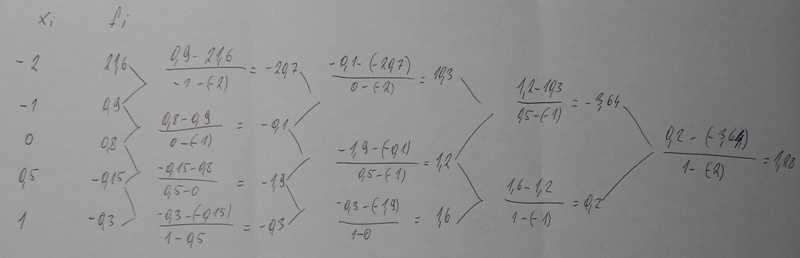 xᵢ fᵢ
-2 21,6 (0,9 - 21,6)/(-1-(-2)) = -20,7 (-0,1-(-20,7))/(0-(-2)) = 10,3
-1 0,9 (0,8-0,9)/(0-(-1)) = -0,1 (1,2-10,3)/(0,5-(-1)) = -3,64
0 0,8 (-1,9-(-0,1))/(0,5-(-1)) = 1,2 (0,2-(-3,64))/(1-(-2)) = 1,28
0,5 -0,15 (-0,15-0,8)/(0,5-0) = -1,9 (1,6-1,2)/(1-(-1)) = 0,2
1 -0,3 (-0,3-(-0,15))/(1-0,5) = -0,3 (-0,3-(-1,9))/(1-0) = 1,6